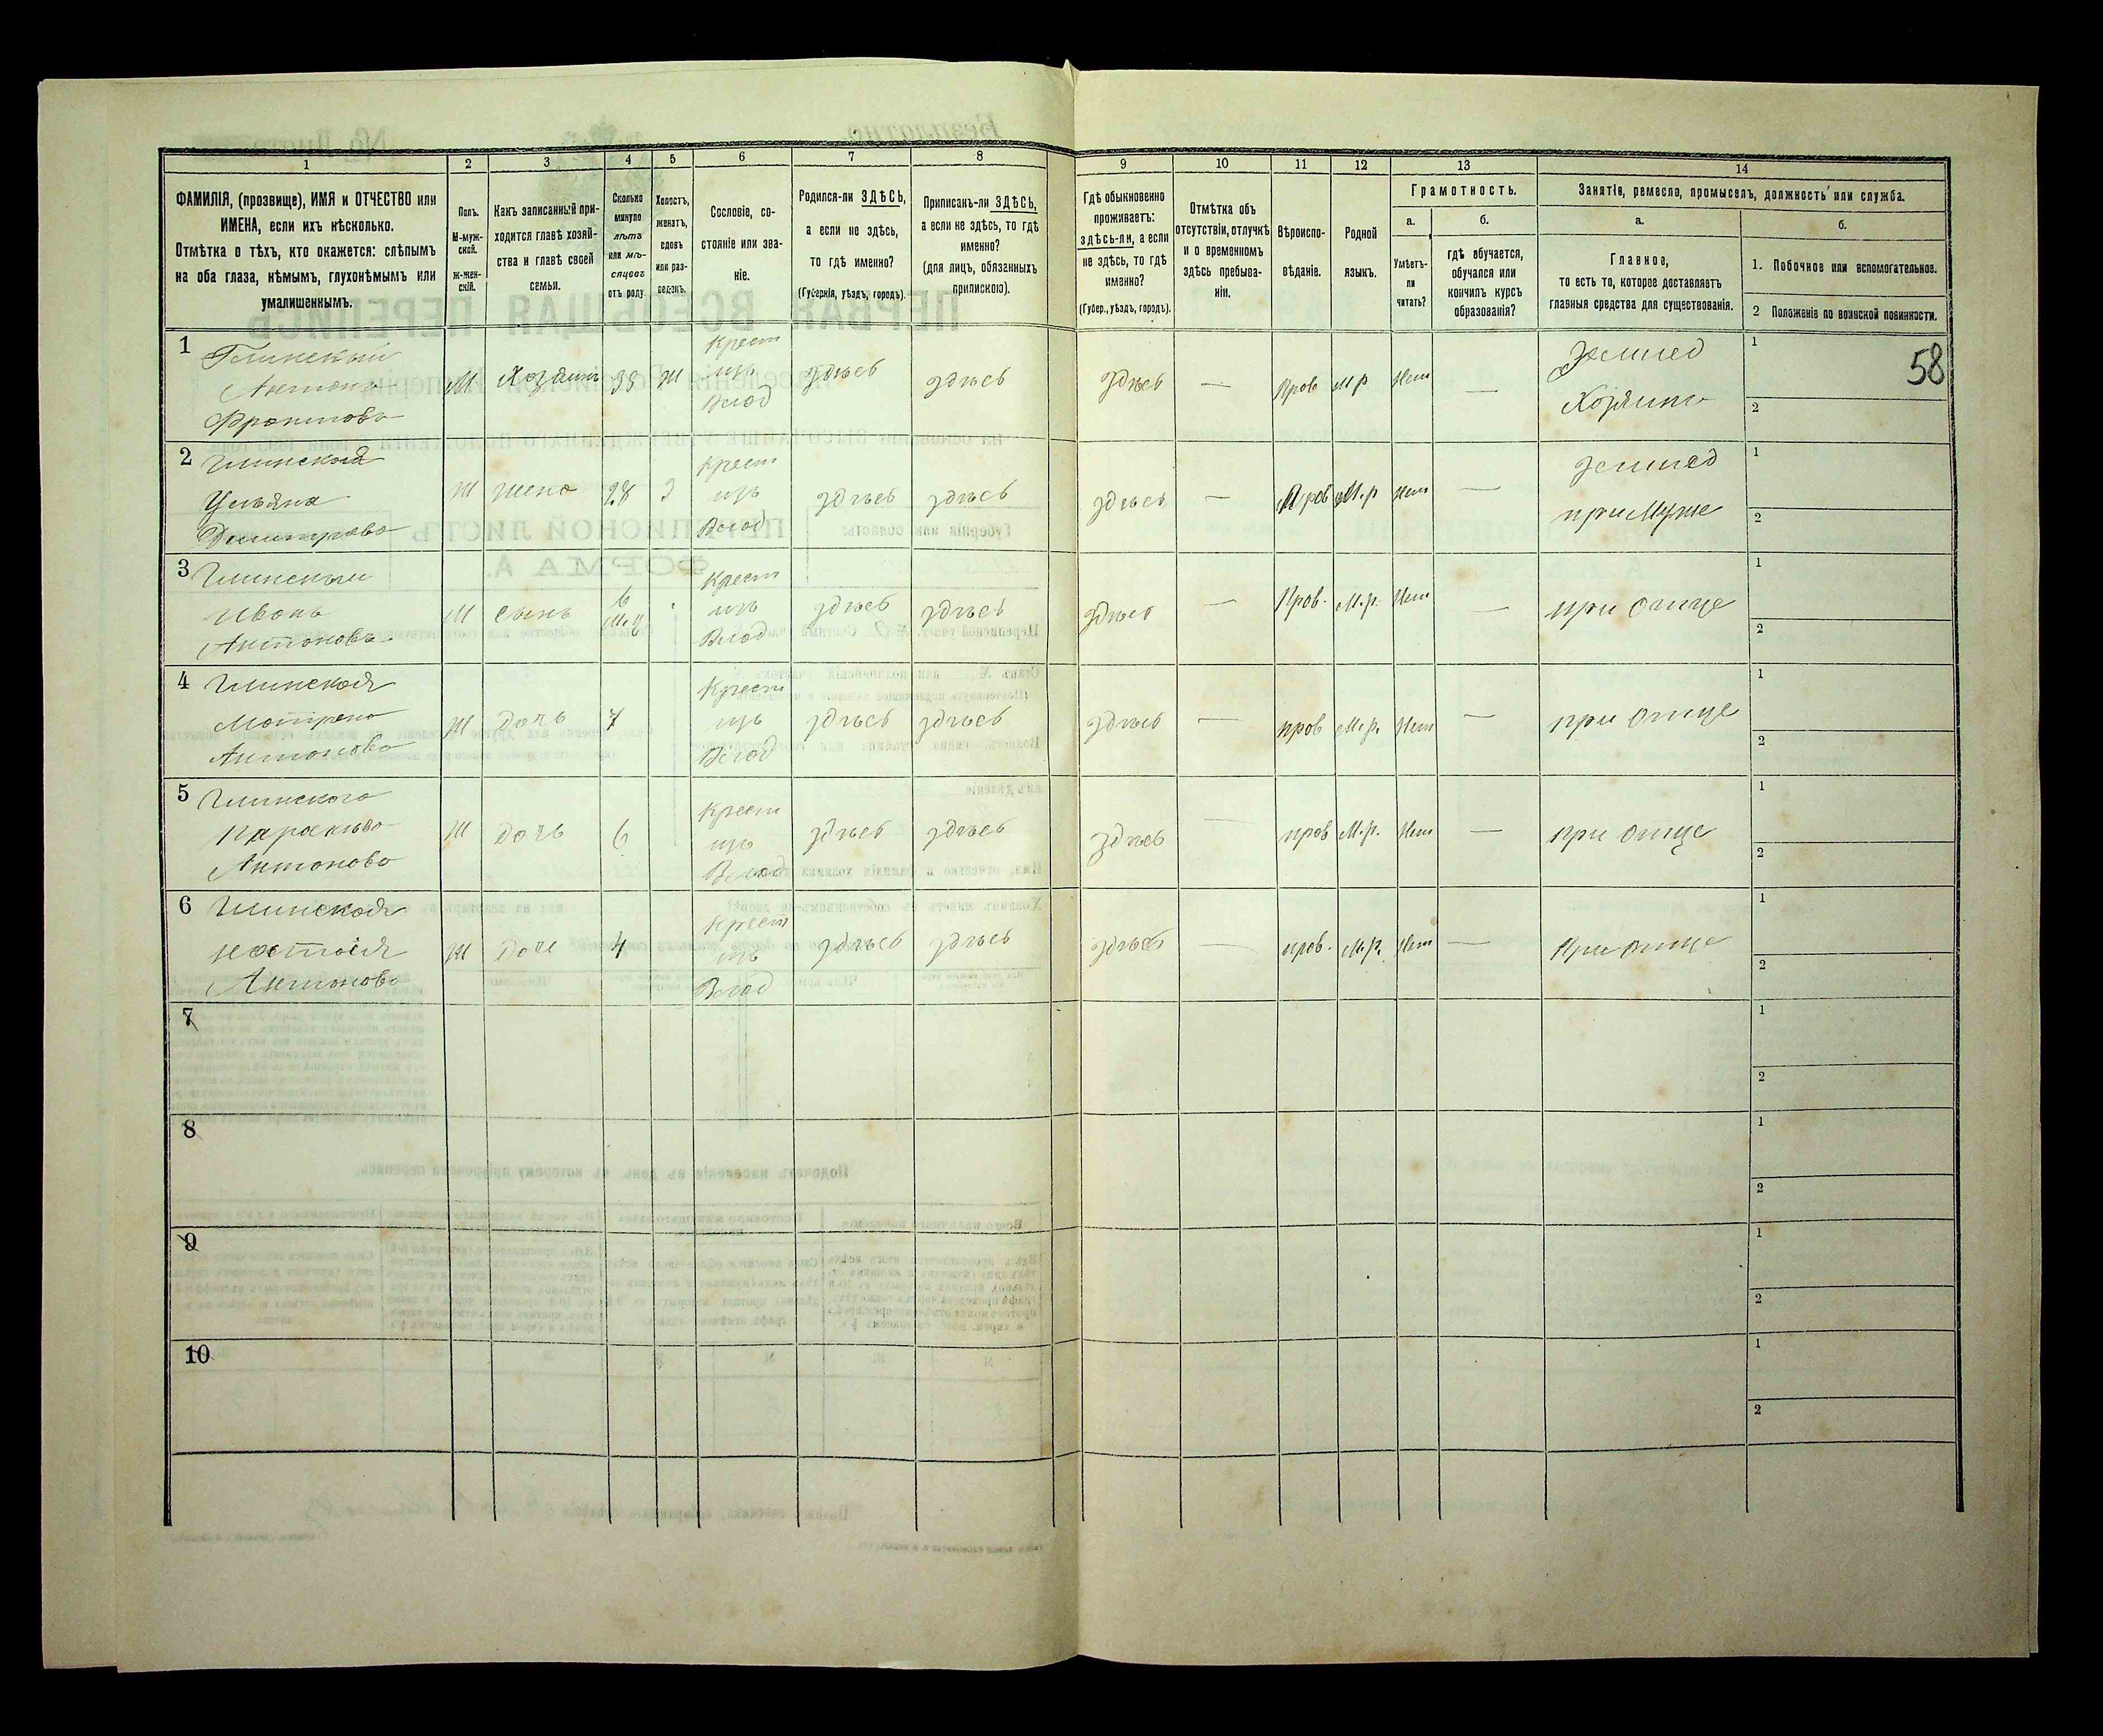 1
2
3
4
5
6
7
8
9
10
11
12
13
14
ФАМИЛІЯ, (прозвище), ИМЯ и ОТЧЕСТВО или
ИМЕНА, если ихъ нѣсколько.
Отмѣтка о тѣхъ, кто окажется: слѣпымъ
на оба глаза, нѣмымъ, глухонѣмымъ или
умалишеннымъ.
Полъ.
М-муж-
ской.
ж-жен-
скій.
Какъ записанный при-
ходится главѣ хозяй-
ства и главѣ своей
семьи.
Сколько
минуло
лѣтъ
или мѣ-
сяцевъ
отъ роду.
Холостъ,
женатъ,
вдовъ
или раз-
веденъ.
Сословіе, со-
стояніе или зва-
ніе.
Родился-ли ЗДѢСЬ,
а если не здѣсь,
то гдѣ именно?
(Губернія, уѣздъ, городъ).
Приписанъ-ли ЗДѢСЬ,
а если не здѣсь, то гдѣ
именно?
(для лицъ, обязанныхъ
припискою).
Гдѣ обыкновенно
проживаетъ:
здѣсь-ли, а если
не здѣсь, то гдѣ
именно?
(Губер., уѣздъ, городъ).
Отмѣтка объ
отсутствіи, отлучкѣ
и о временномъ
здѣсь пребыва-
ніи.
Вѣроиспо-
вѣданіе.
Родной
языкъ.
Грамотность.
а.
Умѣетъ-
ли
читать?
б.
гдѣ обучается,
обучался или
кончилъ курсъ
образованія?
Занятіе, ремесло, промыселъ, должность или служба.
а.
Главное,
то есть то, которое доставляетъ
главныя средства для существованія.
б.
1. Побочное или вспомогательное.
2 Положеніе по воинской повинности.
58
1
Глинскый
Антонъ
М Хозяинъ Ж
Крест
изъ
Влад
здѣсь здѣсь здѣсь — Пров м р Нет —
Земмед
Хозяинъ
1
2
2
Ульяна
Ж жена 28 З
Крест
изъ
Влад
здѣсь здѣсь здѣсь — Пров М.р Нет —
Земмед
при Муже
1
2
3 Глинскый
Иванъ
Антоновъ
М сынъ 6
Крест
изъ
Влад
здѣсь здѣсь здѣсь — Пров. М.р. Нет — при отце
1
2
4 Глинская
Мотрена
Антонова
Ж Дочь 7
Крест
изъ
Влад
здѣсь здѣсь здѣсь — пров М.р. Нет — при отце
1
2
5
Параскева
Антонова
Ж дочь 6
Крест
изъ
Влад
здѣсь здѣсь здѣсь — пров М.р. Нет — при отце
1
2
6 Глинская
Антонова
Ж 4
Крест
изъ
Влад
здѣсь здѣсь здѣсь — пров. М.р. Нет — При отце
1
2
7
1
2
8
1
2
9
1
2
10
1
2